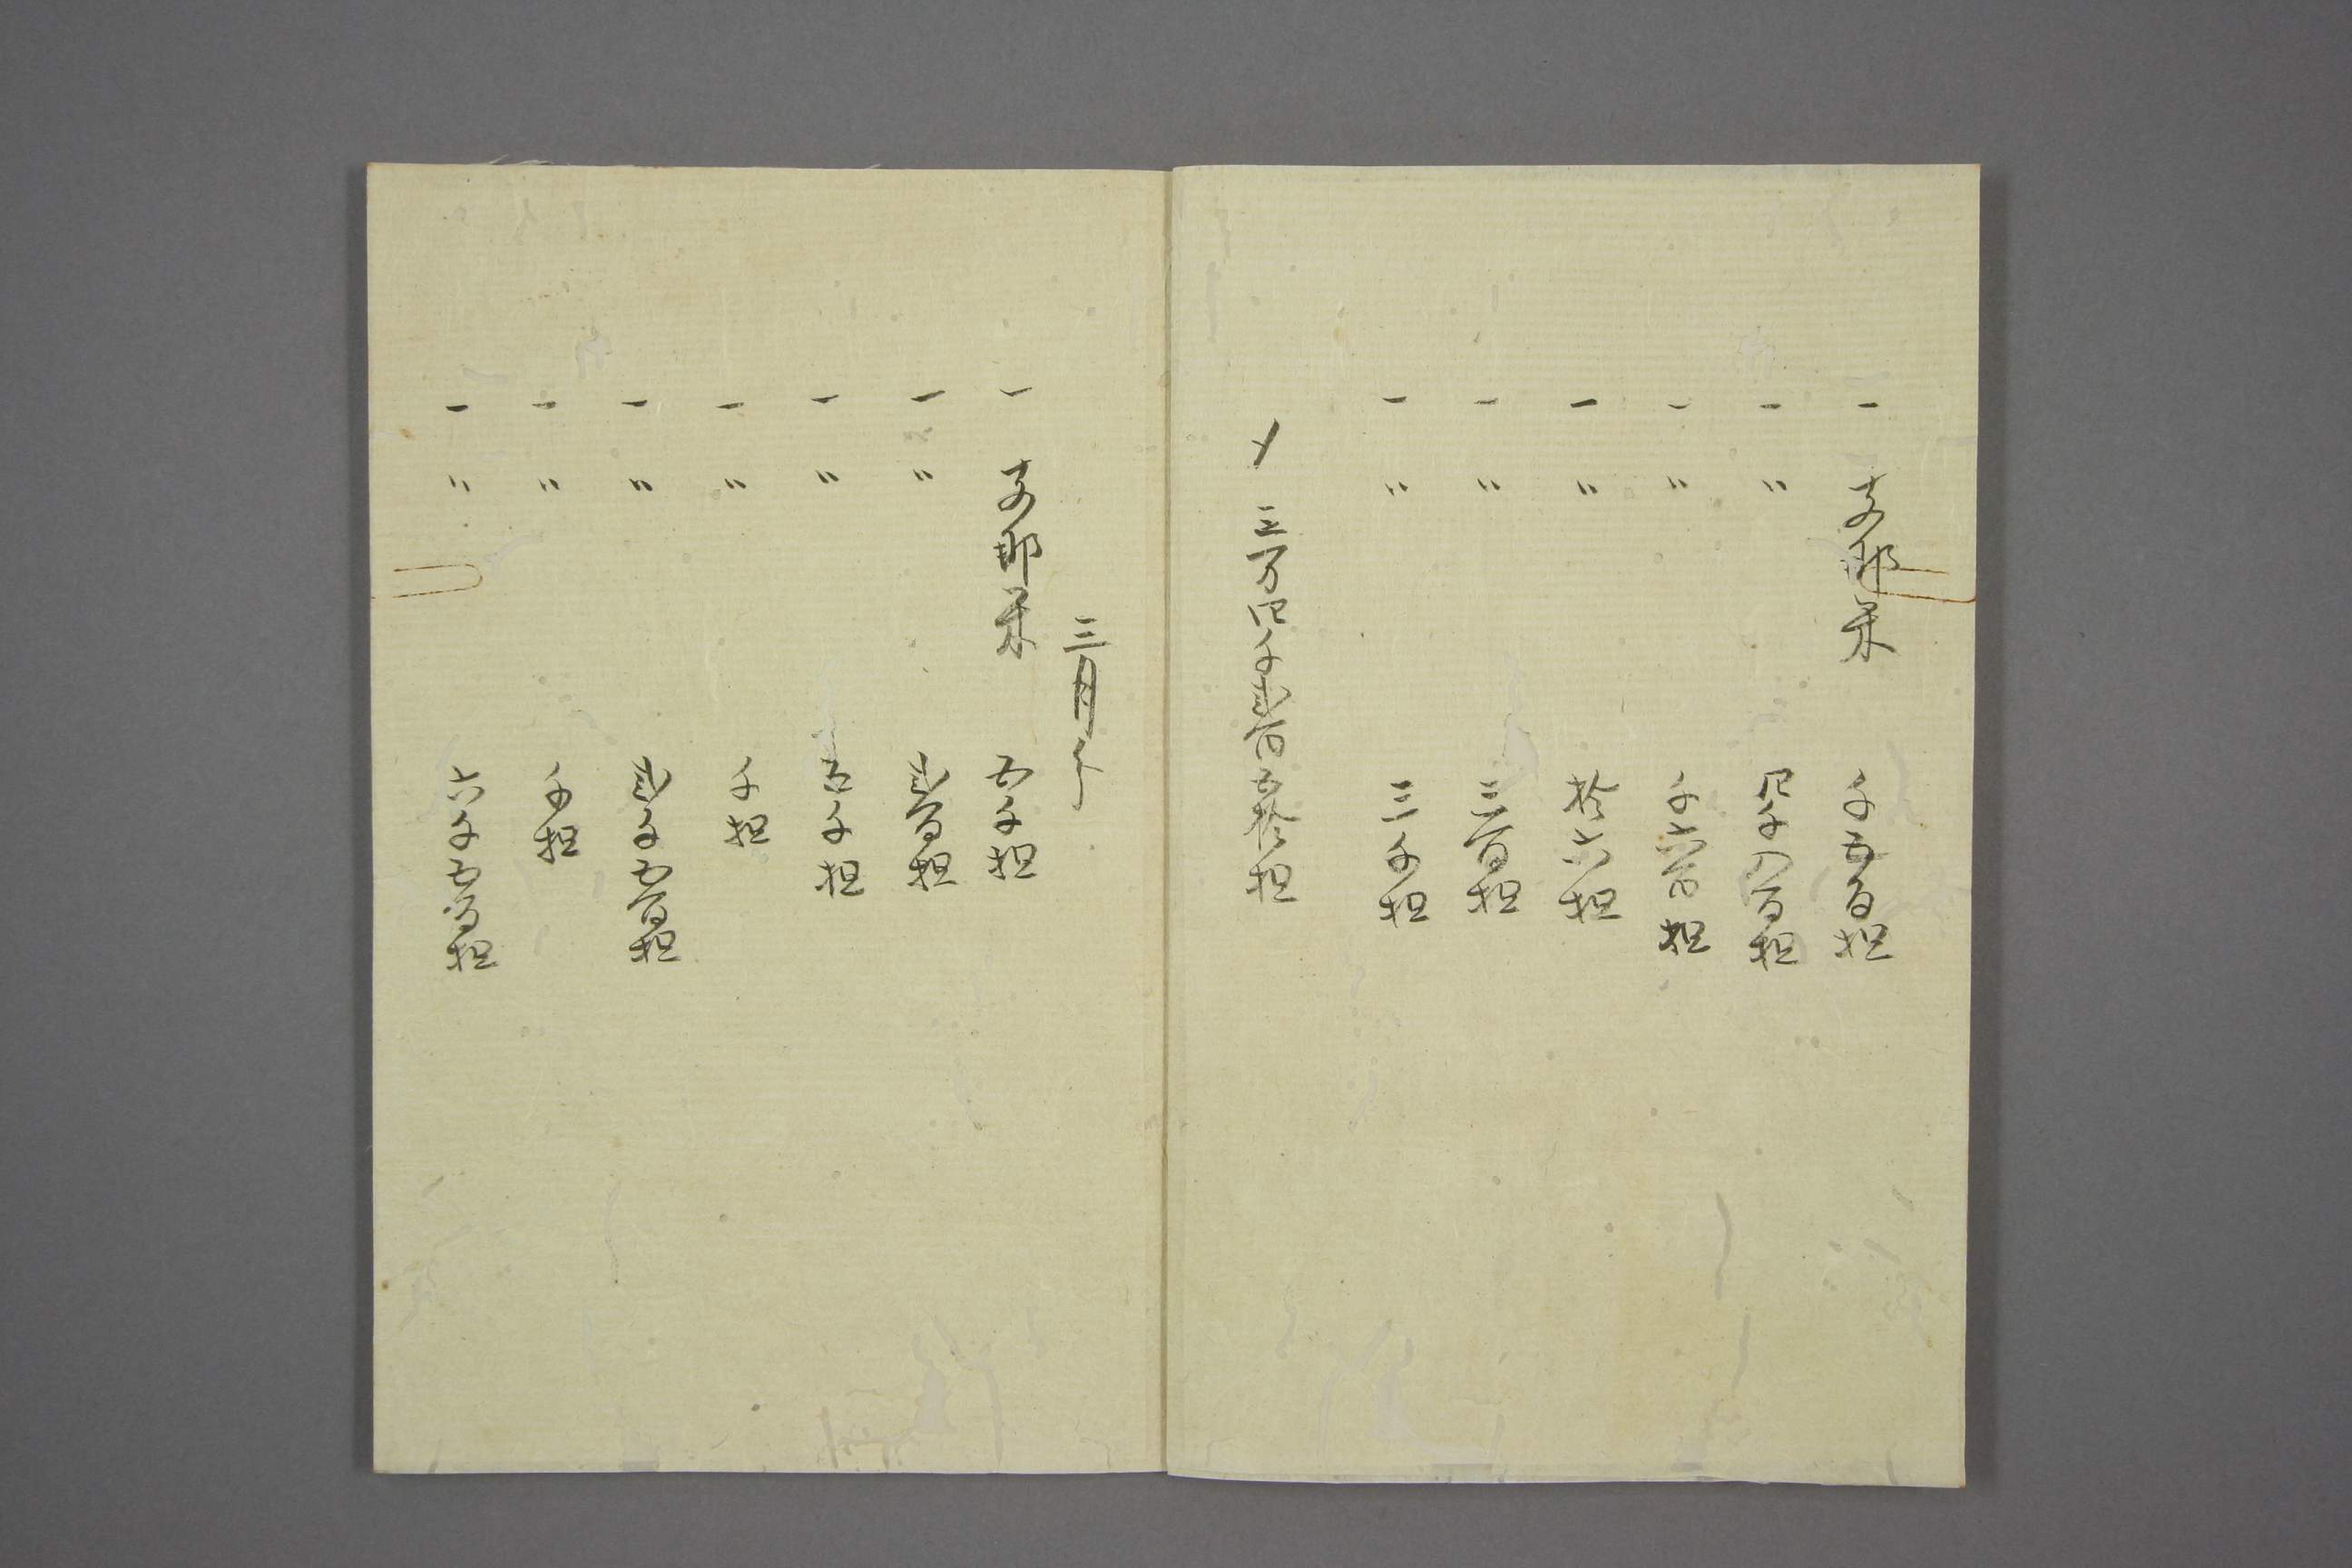 一 支那米 千五百担
一 〃 四千八百担
一 〃 千六百担
一 〃 拾六担
一 〃 三百担
一 〃 三千担
〆 三万四千弐百五拾担
三月分
一 支那米 五千担
一 〃 弐百担
一 〃 五千担
一 〃 千担
一 〃 弐千五百担
一 〃 千担
一 〃 六千五百担